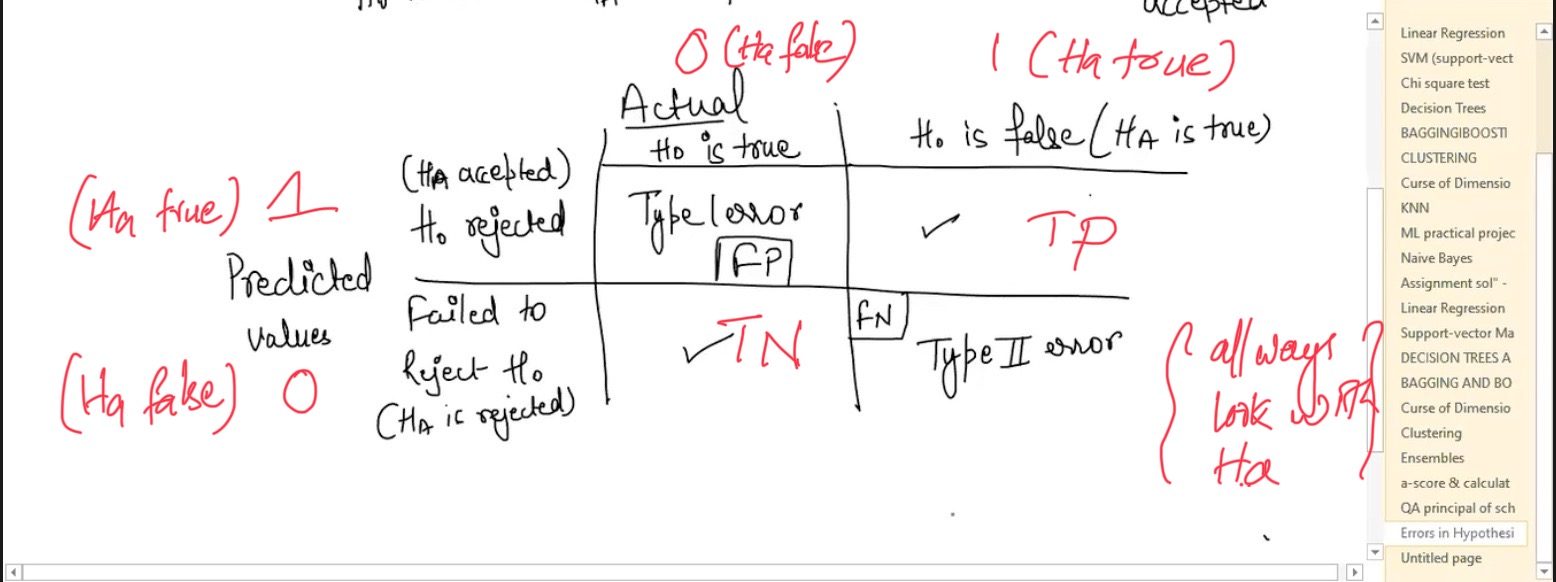 accepted
0 (Ha false)
1 (Ha true)
Actual
H0 is true
H0 is false (HA is true)
(HA accepted)
H0 rejected
(Ha true) 1
Type 1 error
FP
✓ TP
Predicted
values
Failed to
Reject H0
(HA is rejected)
(Ha false) 0
✓ TN
FN
Type II error
all ways
look w.r.t
Ha
Linear Regression
SVM (support-vect
Chi square test
Decision Trees
BAGGINGIBOOSTI
CLUSTERING
Curse of Dimensio
KNN
ML practical projec
Naive Bayes
Assignment sol" -
Linear Regression
Support-vector Ma
DECISION TREES A
BAGGING AND BO
Curse of Dimensio
Clustering
Ensembles
a-score & calculat
QA principal of sch
Errors in Hypothesi
Untitled page